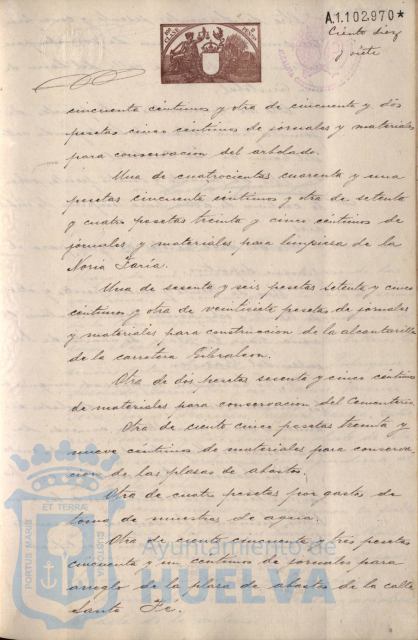 A.1.102.970*
Ciento diez
y siete
cincuenta céntimos y otra de cincuenta y dos
pesetas cinco céntimos de jornales y materiales
para conservacion del arbolado.
Una de cuatrocientas cuarenta y una
pesetas cincuenta céntimos y otra de setenta
y cuatro pesetas treinta y cinco céntimos de
jornales y materiales para limpiesa de la
Noria Faría.
Una de sesenta y seis pesetas setenta y cinco
céntimos y otra de veintisiete pesetas de jornales
y materiales para construccion de la alcantarilla
de la carretera Gibraleon.
Otra de dos pesetas sesenta y cinco céntimos
de materiales para conservacion del Cementerio.
Otra de ciento cinco pesetas treinta y
nueve céntimos de materiales para conserva-
cion de las plasas de abastos.
Otra de cuatro pesetas por gastos de
toma de muestra de agua.
Otra de ciento cincuenta y tres pesetas
cincuenta y un centimos de jornales para
arreglo de la plasa de abastos de la calle
Santa Fe.
ET TERRÆ
PORTUS MARIS
CUSTODIA
Ayuntamiento de
HUELVA